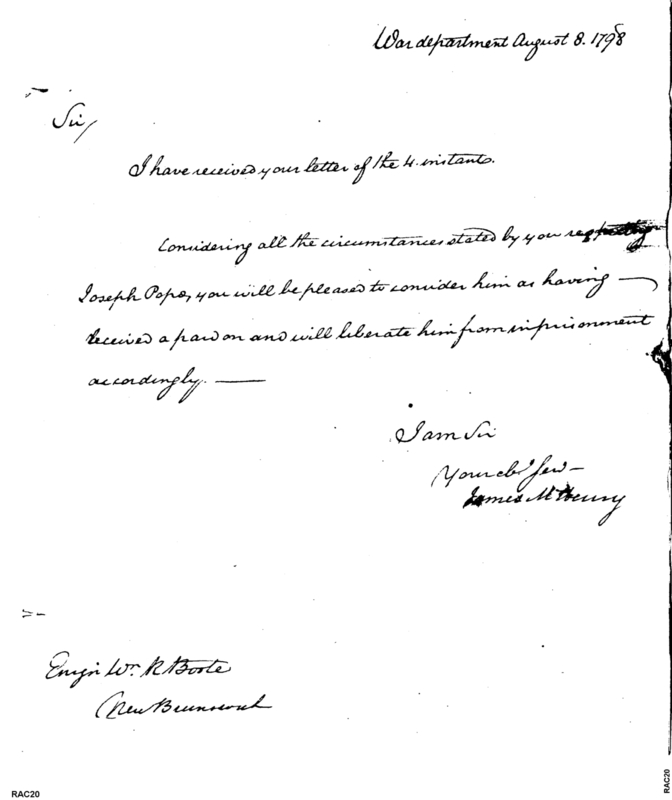 War department August 8. 1798
Sir/
I have received your letter of the 4. instant.
Considering all the circumstances stated by you respecting
Joseph Pope, you will be pleased to consider him as having —
received a pardon and will liberate him from imprisonment
accordingly. —
I am Sir
Your obt Serv —
James McHenry
Ensign Wm. R Boote
New Brunswick
RAC20
RAC20